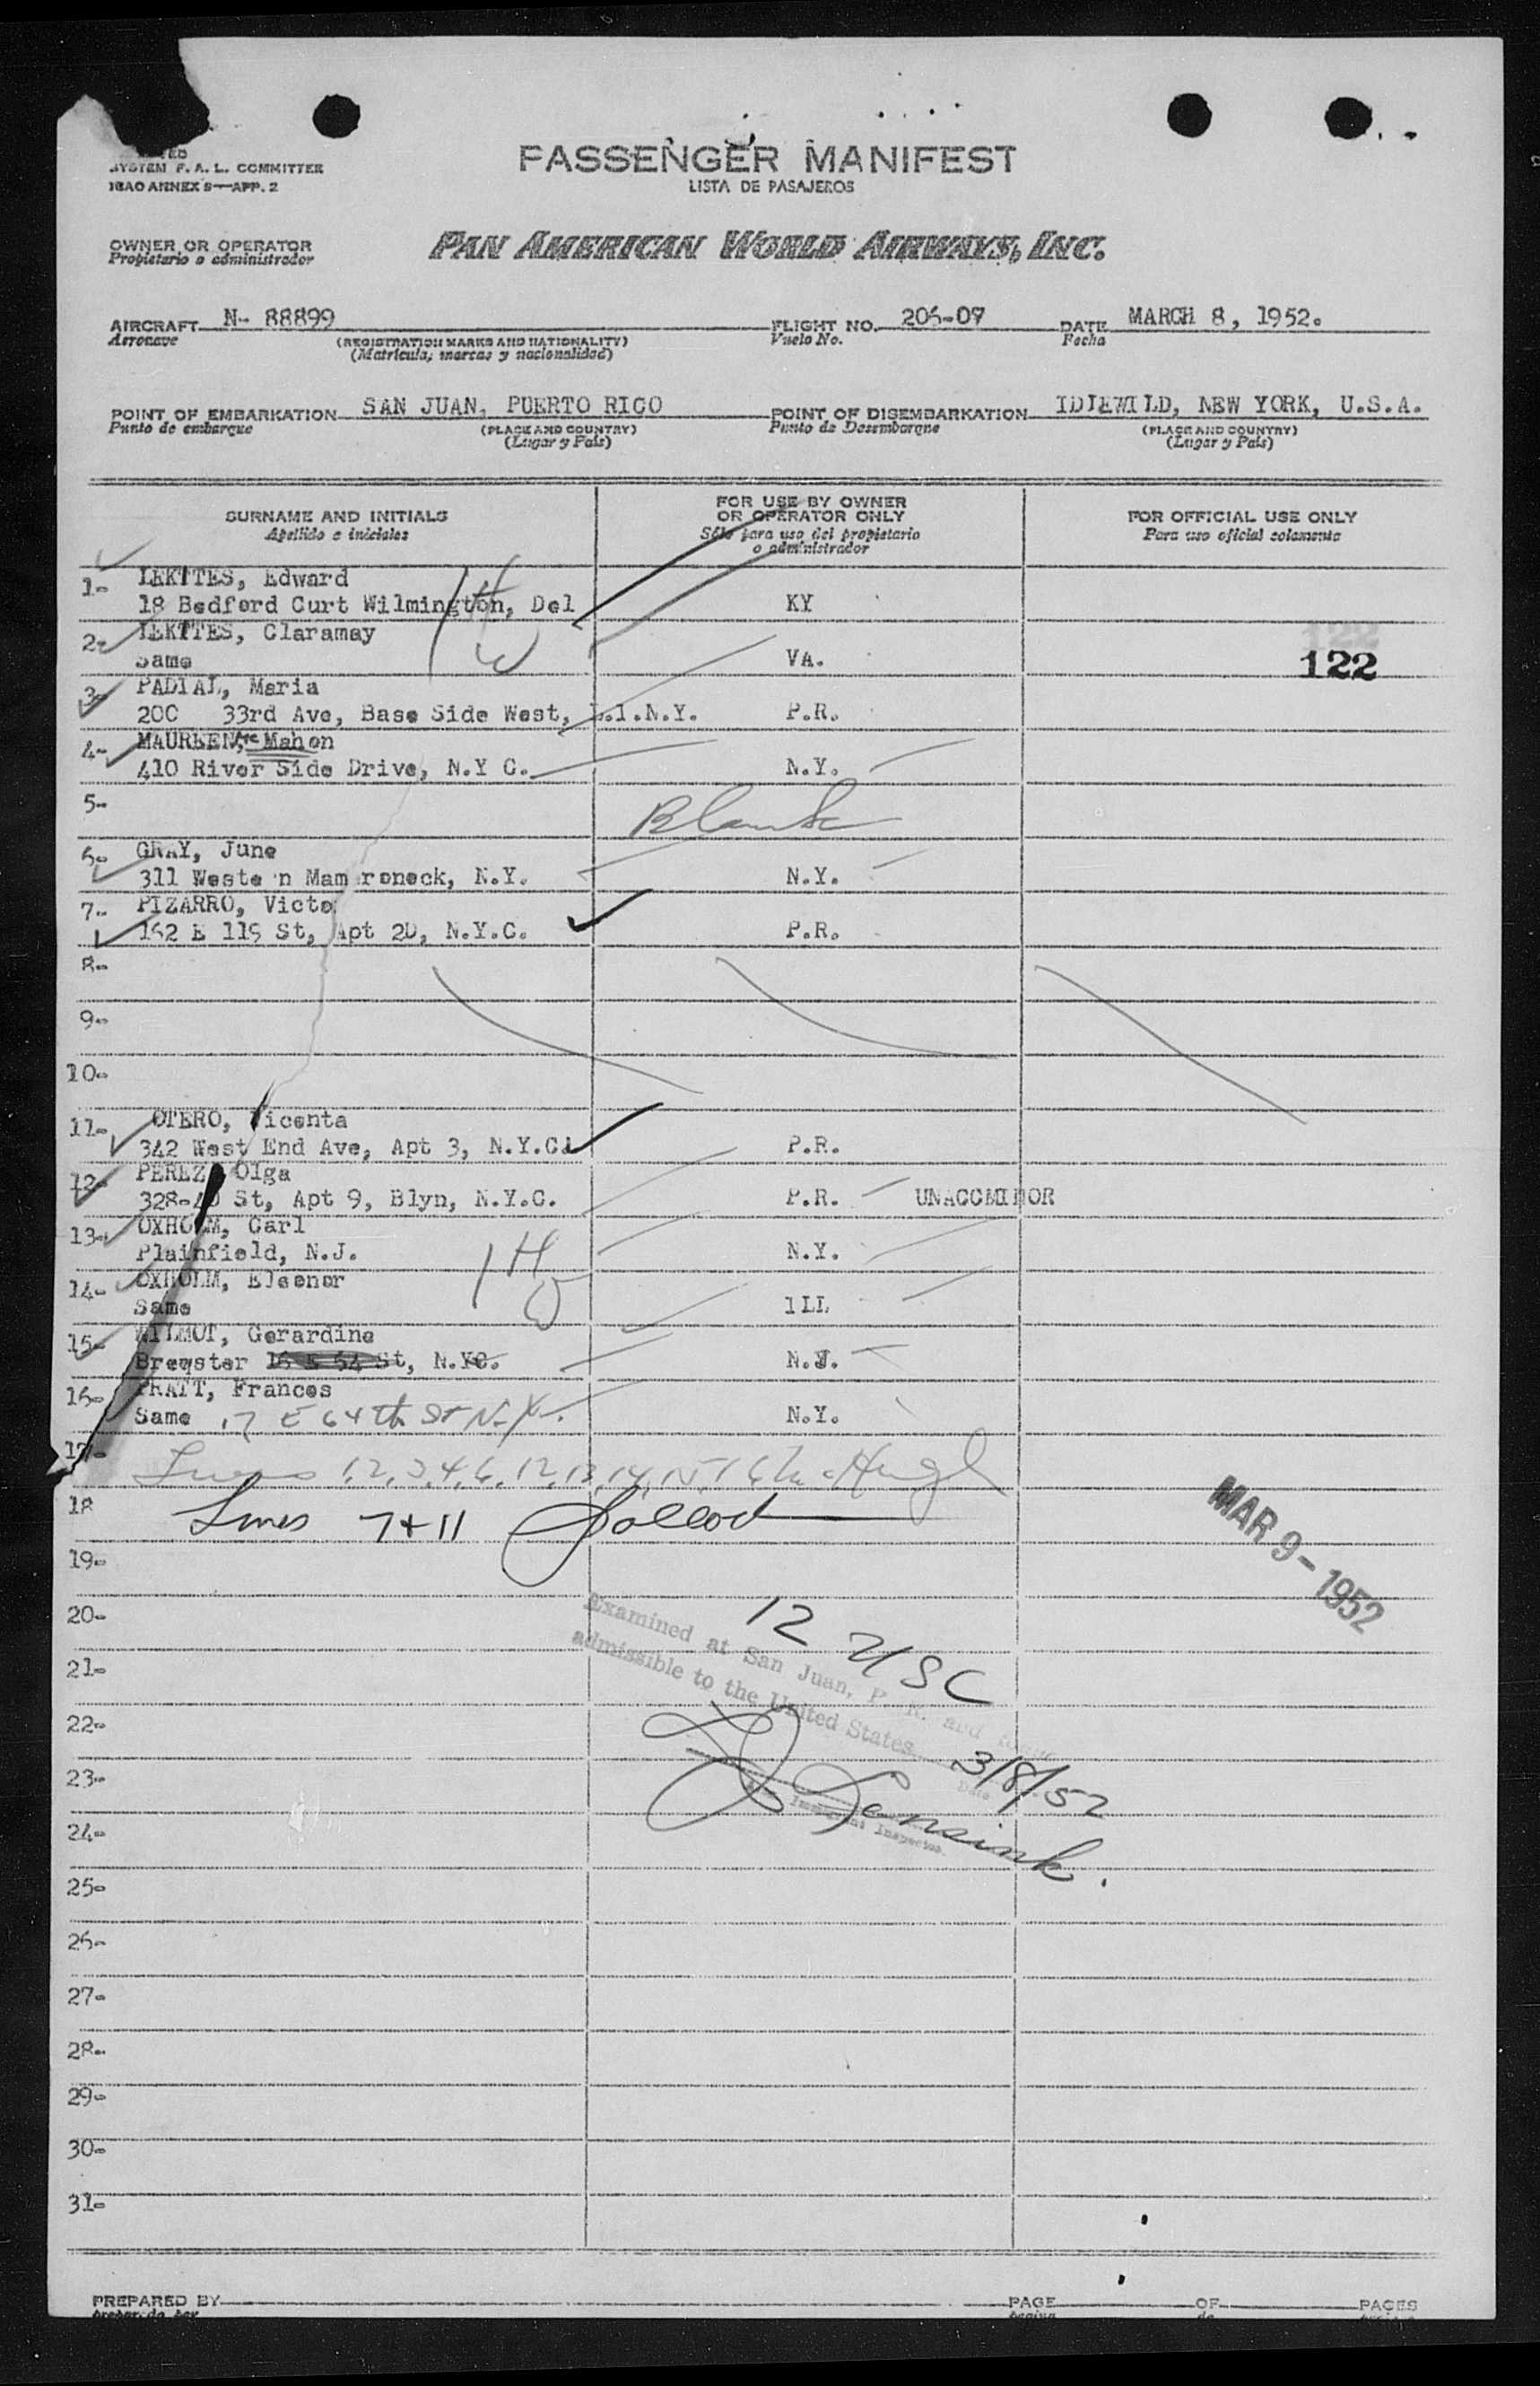 SYSTEM F. A. L. COMMITTEE
ICAO ANNEX 9—APP. 2
PASSENGER MANIFEST
LISTA DE PASAJEROS
OWNER OR OPERATOR
Propietario o administrador
PAN AMERICAN WORLD AIRWAYS, INC.
AIRCRAFT N- 88899 FLIGHT NO. 206-07 DATE MARCH 8, 1952.
Aeronave (REGISTRATION MARKS AND NATIONALITY) Vuelo No. Fecha
(Matricula, marcas y nacionalidad)
POINT OF EMBARKATION SAN JUAN, PUERTO RICO POINT OF DISEMBARKATION IDLEWILD, NEW YORK, U.S.A.
Punto de embarque (PLACE AND COUNTRY) Punto de Desembarque (PLACE AND COUNTRY)
(Lugar y País) (Lugar y País)
SURNAME AND INITIALS FOR USE BY OWNER OR OPERATOR ONLY FOR OFFICIAL USE ONLY
Apellido e iniciales Sólo para uso del propietario o administrador Para uso oficial solamente
1- LEKITES, Edward
18 Bedford Curt Wilmington, Del KY
H
2- LEKITES, Claramay
W
Same VA. 122
3- PADIAL, Maria
20C 33rd Ave, Base Side West, L.I.N.Y. P.R.
4- MAUREEN, Mc Mahon
410 River Side Drive, N.Y C. N.Y.
5- Blank
6- GRAY, June
311 Weste n Mam roneck, N.Y. N.Y.
7- PIZARRO, Victo
162 E 119 St, Apt 2D, N.Y.C. P.R.
8-
9-
10-
11- OTERO, Vicenta
342 West End Ave, Apt 3, N.Y.C. P.R.
12- PEREZ, Olga
328-40 St, Apt 9, Blyn, N.Y.C. P.R. UNACCMINOR
13- OXHOLM, Carl
Plainfield, N.J. N.Y.
H
14- OXHOLM, Eleenor
W
Same ILL
15- WILMOT, Gerardine
Brewster 16 E 64 St, N.YC. N.J.
16- PRATT, Frances
Same 17 E 64th St N.Y. N.Y.
17- Lines 1,2,3,4,6,12,13,14,15,16 McHugh
18 Lines 7+11 Pollock
MAR 9-1952
19-
20- 12 USC
Examined at San Juan, P. R. and found
admissible to the United States
21-
22-
3/8/52
Date
23-
Immigrant Inspector
24-
25-
26-
27-
28-
29-
30-
31-
PREPARED BY PAGE OF PAGES